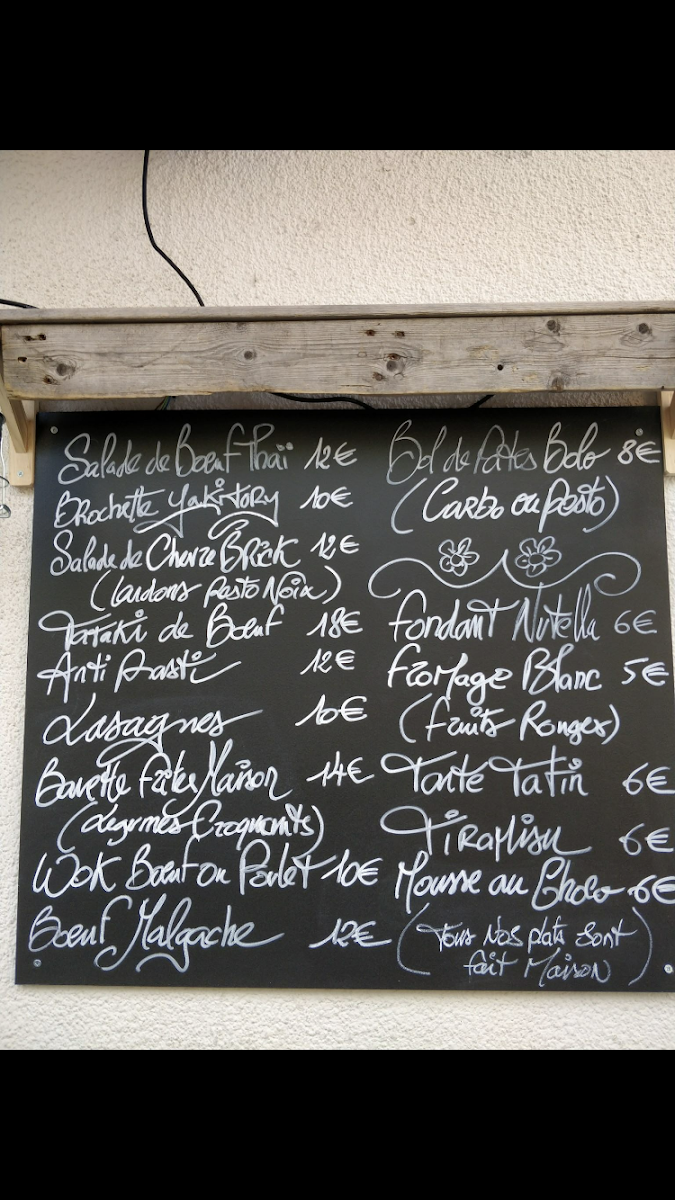 Salade de Bœuf Thaï 12€
Brochette Yakitory 10€
Salade de Chevre Brick 12€
(lardons Pesto Noix)
Tataki de Bœuf 18€
Anti Pasti 12€
Lasagnes 10€
Bavette Pâtes Maison 14€
(Légumes Croquants)
Wok Bœuf ou Poulet 10€
Bœuf Malgache 12€
Bol de Pâtes Bolo 8€
(Carbo ou Pesto)
Fondant Nutella 6€
Fromage Blanc 5€
(Fruits Rouges)
Tarte Tatin 6€
Tiramisu 6€
Mousse au Choco 6€
(Tous nos plats sont
fait Maison)